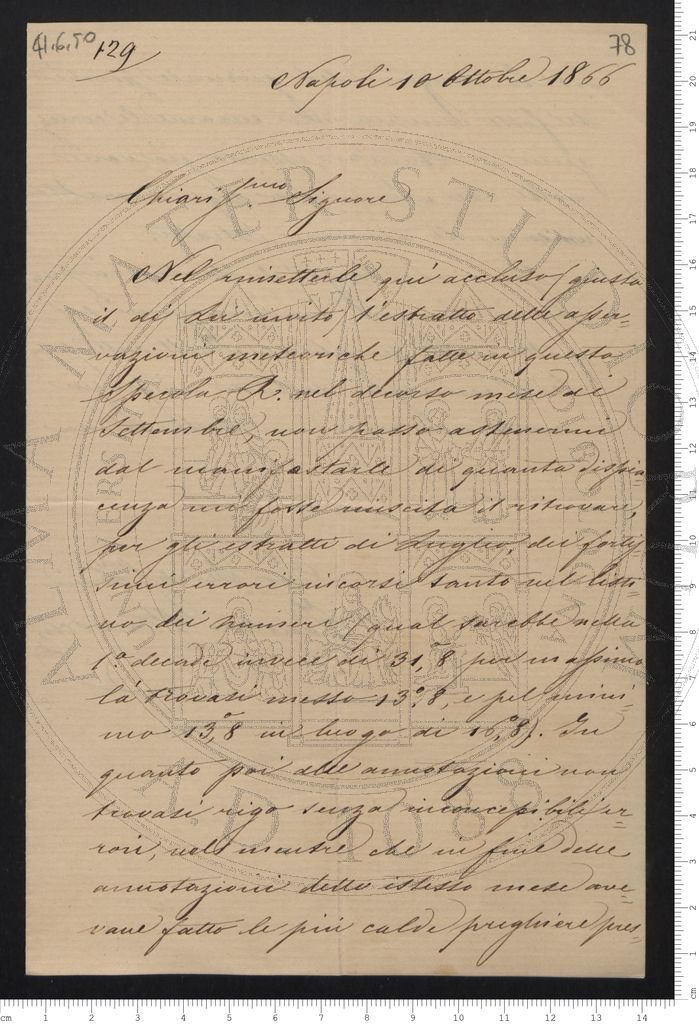 41.6.50
129
78
Napoli 10 Ottobre 1866
Chiarissimo Signore
Nel rimetterle quì accluso (giusta
il di Lei invito) l'estratto delle osser=
vazioni meteoriche fatte in questa
Specola R. nel decorso mese di
Settembre, non posso astenermi
dal manifestarle di quanta dispia
cenza mi fosse riuscita il ritrovare,
per gli estratti di Luglio, dei fortis
simi errori incorsi tanto nel listi
no dei numeri (qual sarebbe nella
1ª decade invece di 31,°8 per massimo
là trovasi messo 13,°8, e pel mini
mo 13,°8 in luogo di 16,°8). In
quanto poi alle annotazioni non
trovasi rigo senza inconcepibili er=
rori, nel mentre che in fine delle
annotazioni dello istesso mese ave
vane fatto le più calde preghiere pres=
ALMA MATER STUDIORUM
UNIVERS
BONON
A.D. 1088